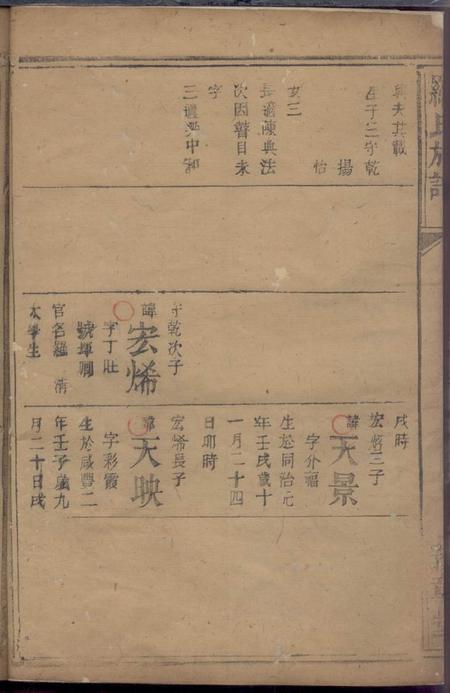 與夫共職
生子三守乾
揚
怡
女三
長適陳典法
次因瞽目未
字
三適梁中和
守乾次子
諱宏烯
字丁壯
號墀卿
官名羅 清
太學生
戌時
宏烯三子
諱天景
字介福
生於同治元
年壬戌歲十
一月二十四
日卯時
宏烯長子
諱天映
字彩霞
生於咸豐二
年壬子歲九
月二十日戌
羅氏族譜